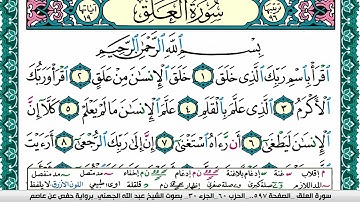 سُورَةُ العَلَقِ
بِسْمِ اللَّهِ الرَّحْمَٰنِ الرَّحِيمِ
ٱقْرَأْ بِٱسْمِ رَبِّكَ ٱلَّذِى خَلَقَ ١ خَلَقَ ٱلْإِنسَٰنَ مِنْ عَلَقٍ ٢ ٱقْرَأْ وَرَبُّكَ
ٱلْأَكْرَمُ ٣ ٱلَّذِى عَلَّمَ بِٱلْقَلَمِ ٤ عَلَّمَ ٱلْإِنسَٰنَ مَا لَمْ يَعْلَمْ ٥ كَلَّآ إِنَّ
ٱلْإِنسَٰنَ لَيَطْغَىٰٓ ٦ أَن رَّءَاهُ ٱسْتَغْنَىٰٓ ٧ إِنَّ إِلَىٰ رَبِّكَ ٱلرُّجْعَىٰٓ ٨ أَرَءَيْتَ
سورة العلق، الصفحة ٥٩٧، الحزب ٦٠، الجزء ٣٠، بصوت الشيخ عبد الله الجهني برواية حفص عن عاصم